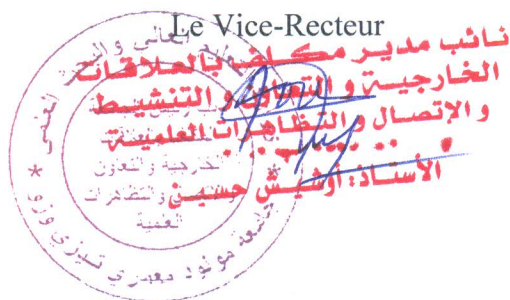 Le Vice-Recteur
نائب مدير مكلف بالعلاقات
الخارجية و التعاون و التنشيط
و الإتصال و التظاهرات العلمية
الأستاذ: أوشيش حسين
الخارجية و التعاون
و التظاهرات
العلمية
جامعة مولود معمري تيزي وزو